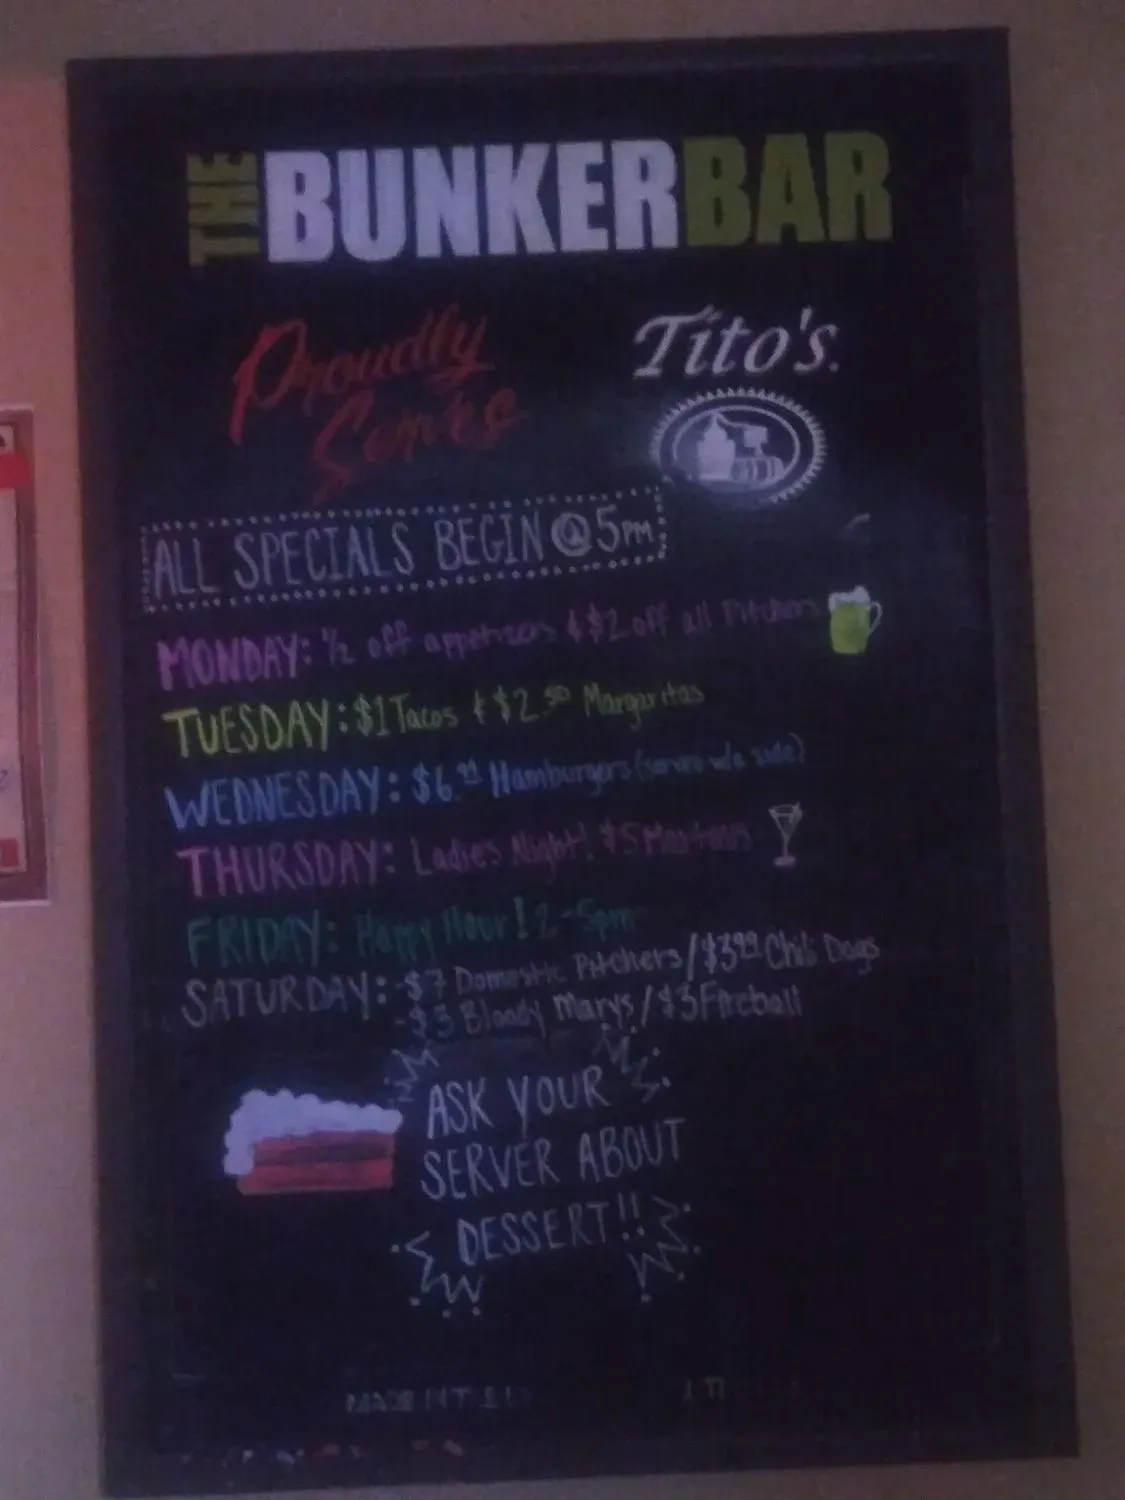 THE BUNKERBAR
Proudly Serves
Tito's
ALL SPECIALS BEGIN @ 5PM
MONDAY: ½ off appetizers & $2 off all Pitchers
TUESDAY: $1 Tacos & $2.50 Margaritas
WEDNESDAY: $6. Hamburgers (serves w/a side)
THURSDAY: Ladies Night! $5 Martinis
FRIDAY: Happy Hour! 2-5pm
SATURDAY: -$7 Domestic Pitchers/$3.99 Chili Dogs
-$3 Bloody Marys/$3 Fireball
ASK YOUR
SERVER ABOUT
DESSERT!!